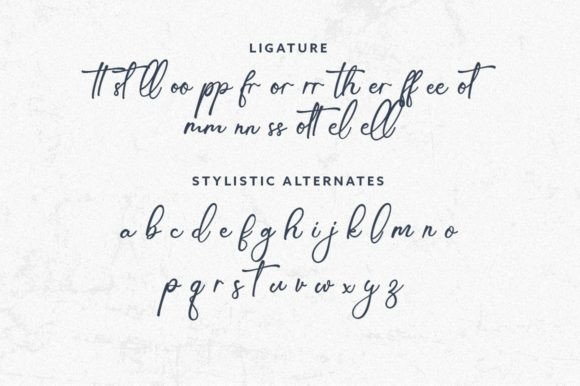 LIGATURE
tt st ll oo pp fr or rr th er ff ee ot
mm nn ss ott el ell
STYLISTIC ALTERNATES
a b c d e f g h i j k l m n o
p q r s t u v w x y z